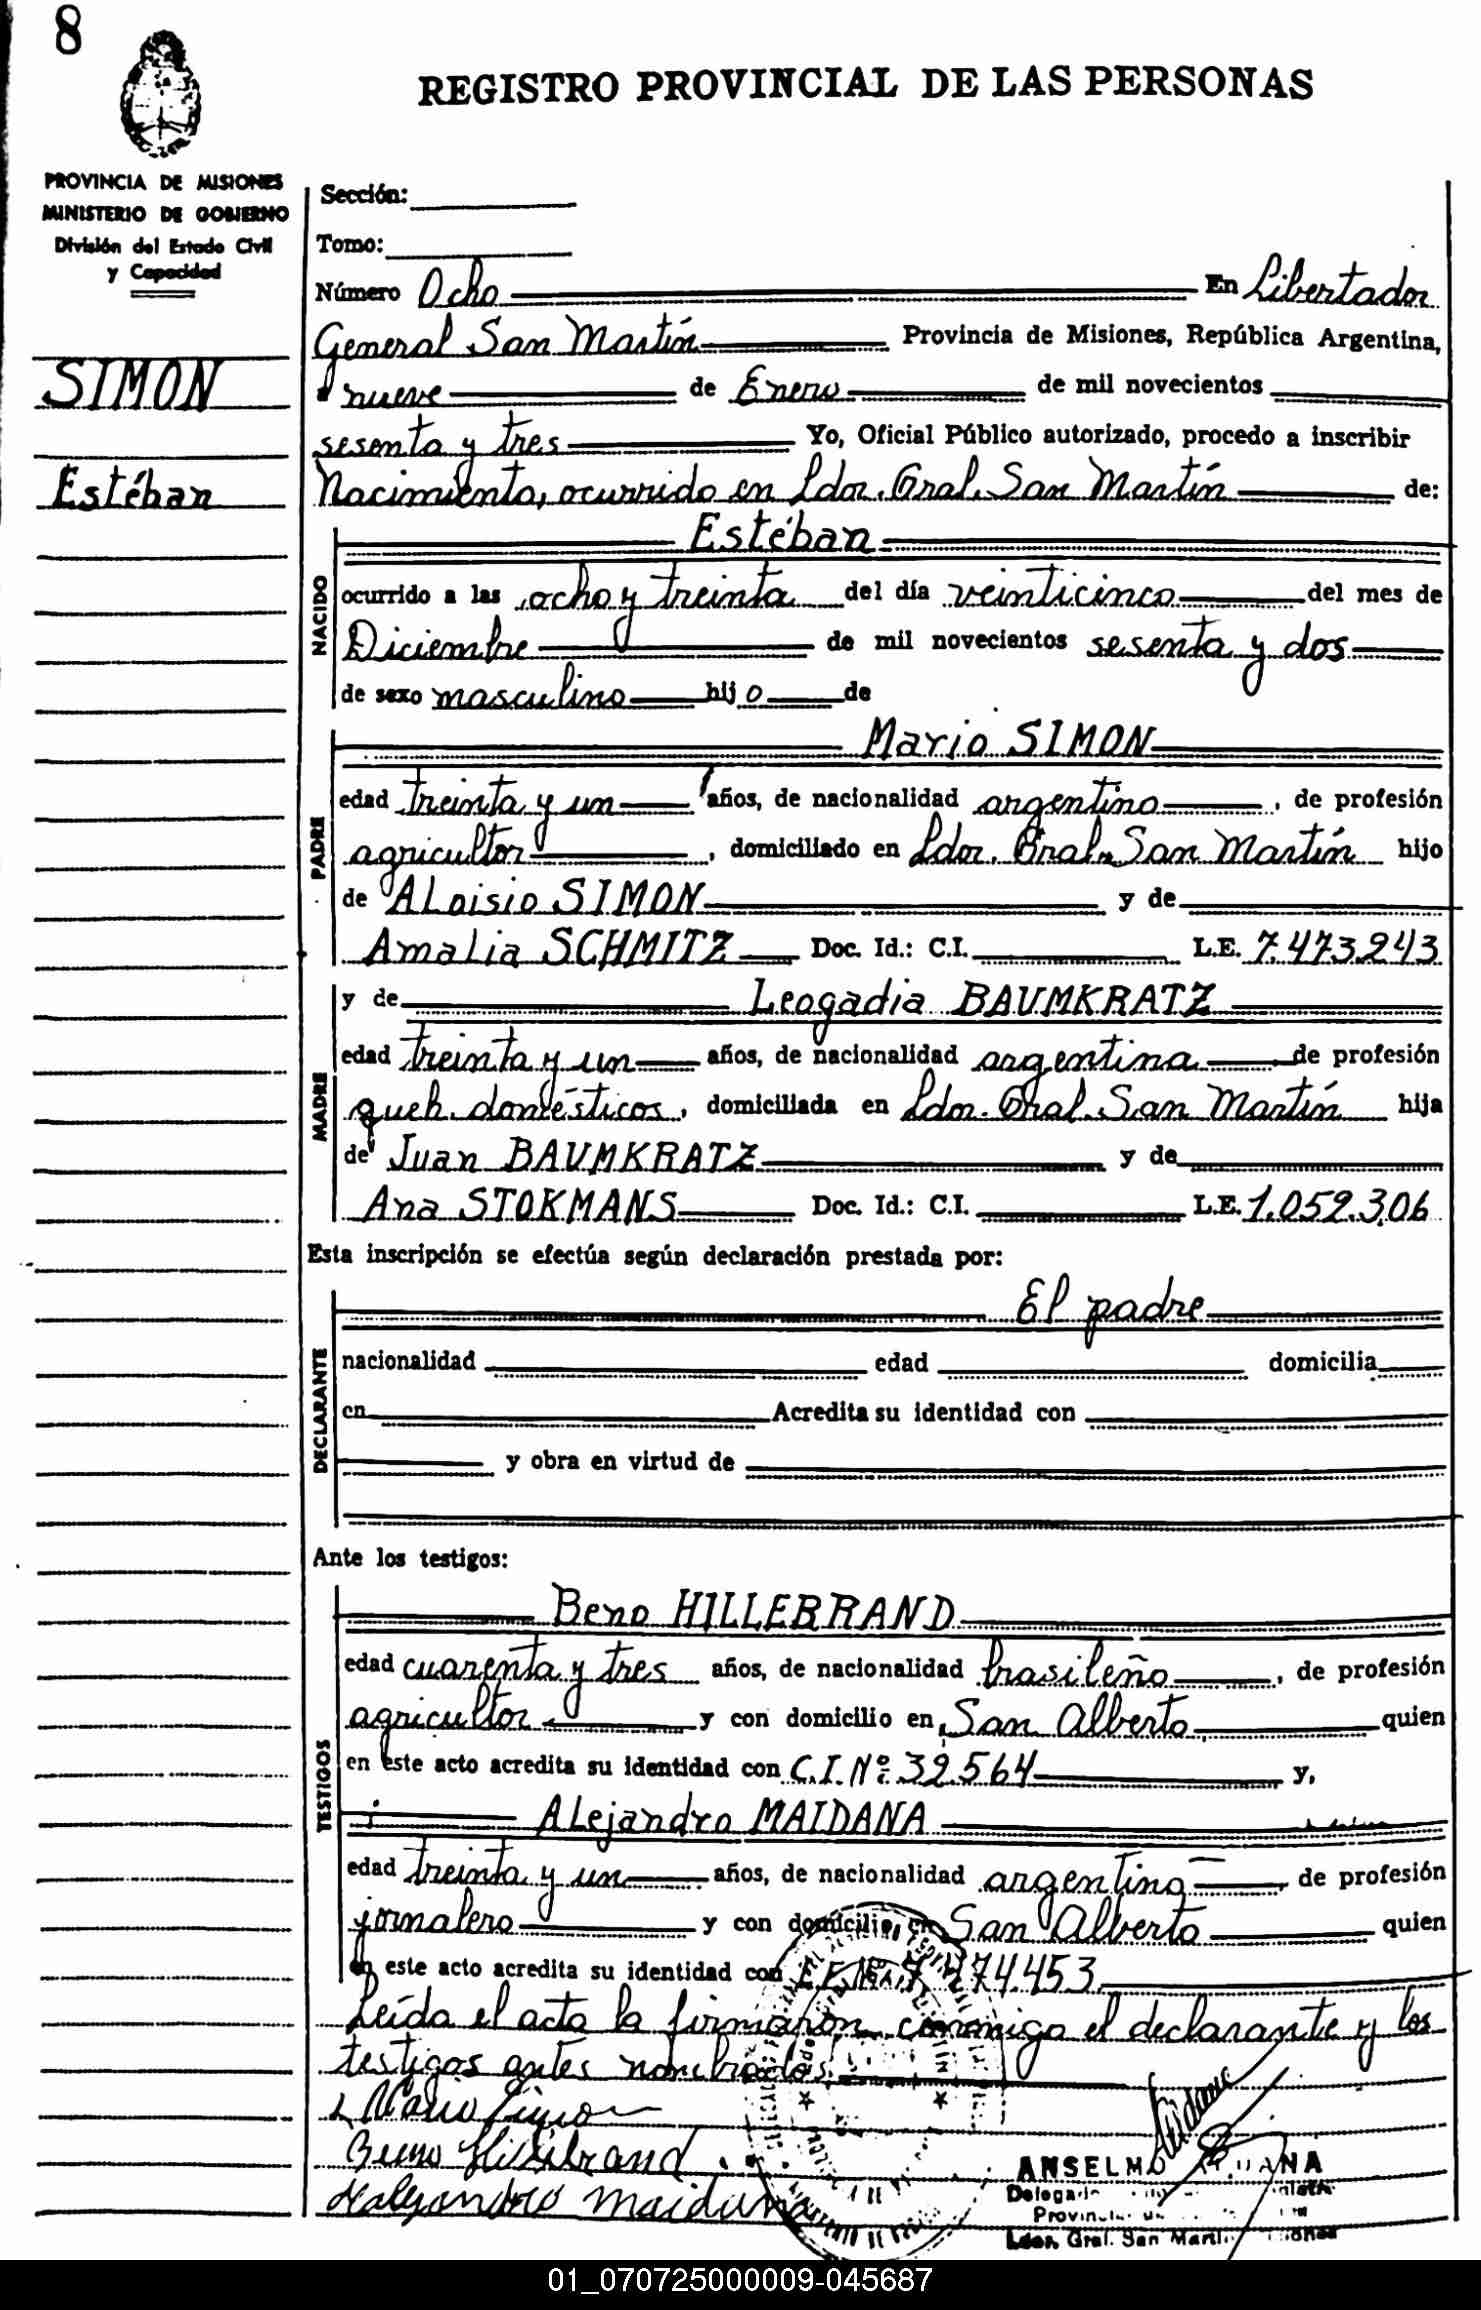 8
REGISTRO PROVINCIAL DE LAS PERSONAS
PROVINCIA DE MISIONES
MINISTERIO DE GOBIERNO
División del Estado Civil
y Capacidad
SIMON
Estéban
Sección:
Tomo:
Número Ocho En Libertador
General San Martín Provincia de Misiones, República Argentina,
a nueve de Enero de mil novecientos
sesenta y tres Yo, Oficial Público autorizado, procedo a inscribir
Nacimiento, ocurrido en Ldor. Gral. San Martín de:
NACIDO
Estéban
ocurrido a las ocho y treinta del día veinticinco del mes de
Diciembre de mil novecientos sesenta y dos
de sexo masculino hijo de
PADRE
Mario SIMON
edad treinta y un años, de nacionalidad argentino, de profesión
agricultor, domiciliado en Ldor. Gral. San Martín hijo
de ALoisio SIMON y de
Amalia SCHMITZ Doc. Id.: C.I. L.E. 7.473.243
MADRE
y de Leogadia BAUMKRATZ
edad treinta y un años, de nacionalidad argentina de profesión
queh. domésticos, domiciliada en Ldor. Gral. San Martín hija
de Juan BAUMKRATZ y de
Ana STOKMANS Doc. Id.: C.I. L.E. 1.059.306
Esta inscripción se efectúa según declaración prestada por:
DECLARANTE
El padre
nacionalidad edad domicilia
en Acredita su identidad con
y obra en virtud de
Ante los testigos:
TESTIGOS
Beno HILLEBRAND
edad cuarenta y tres años, de nacionalidad brasileño, de profesión
agricultor y con domicilio en San Alberto quien
en este acto acredita su identidad con C.I. Nº 32.564 y,
ALejandro MAIDANA
edad treinta y un años, de nacionalidad argentino, de profesión
jornalero y con domicilio en San Alberto quien
en este acto acredita su identidad con 7.474.453
Leída el acta la firmaron conmigo el declarante y los
testigos antes nombrados.
Mario Simon
Beno Hillebrand
Alejandro Maidana
ANSELMO
Ldor. Gral. San Martín
01_070725000009-045687